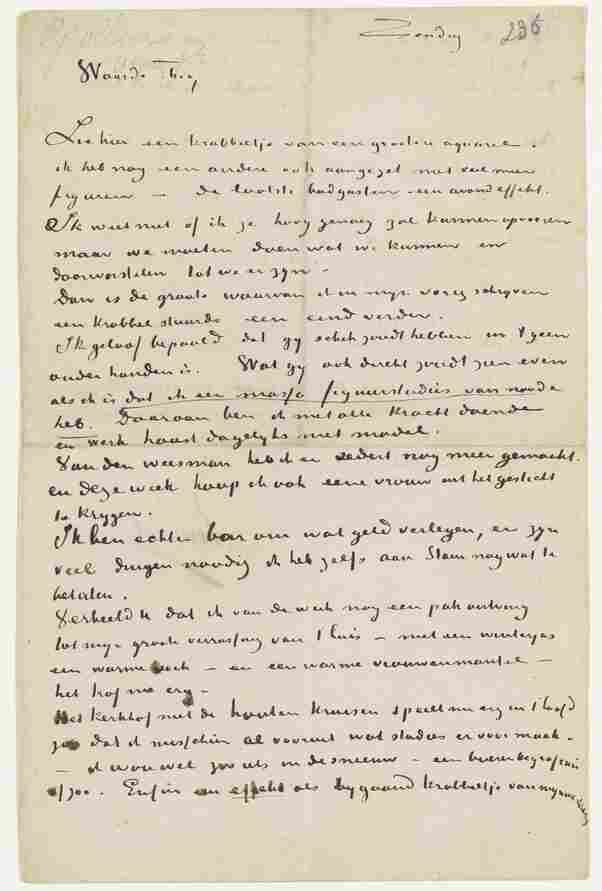 Zondag 236
Waarde Theo,
Zie hier een krabbeltje van een groote aquarel.
ik heb nog een andere ook aangezet met veel meer
figuren – de laatste badgasten een avondeffekt.
Ik weet niet of ik je hoog genoeg zal kunnen opvoeren
maar we moeten doen wat we kunnen en
doorworstelen tot we er zyn –
Dan is de groote waarvan ik in myn vorig schryven
een krabbel stuurde een eind verder.
Ik geloof bepaald dat gy schik zoudt hebben in t geen
onder handen is. Wat gy ook direkt zoudt zien even
als ik is dat ik een massa figuurstudies van noode
heb. Daaraan ben ik met alle kracht doende
en werk haast dagelyks met model.
Van den weesman heb ik er sedert nog meer gemaakt.
en deze week hoop ik ook eene vrouw uit het gesticht
te krygen.
Ik ben echter bar om wat geld verlegen, er zyn
veel dingen noodig ik heb zelfs aan Stam nog wat te
betalen.
Verbeeld U dat ik van de week nog een pak ontving
tot myn groote verrassing van t huis – met een winterjas
een warme broek – en een warme vrouwenmantel –
het trof me erg –
Het kerkhof met de houten kruisen speelt me erg in t hoofd
zoo dat ik misschien al vooruit wat studies er voor maak –
– ik wou wel zoo iets in de sneeuw – een boerenbegrafenis
of zoo. Enfin een effekt als bygaand krabbeltje van